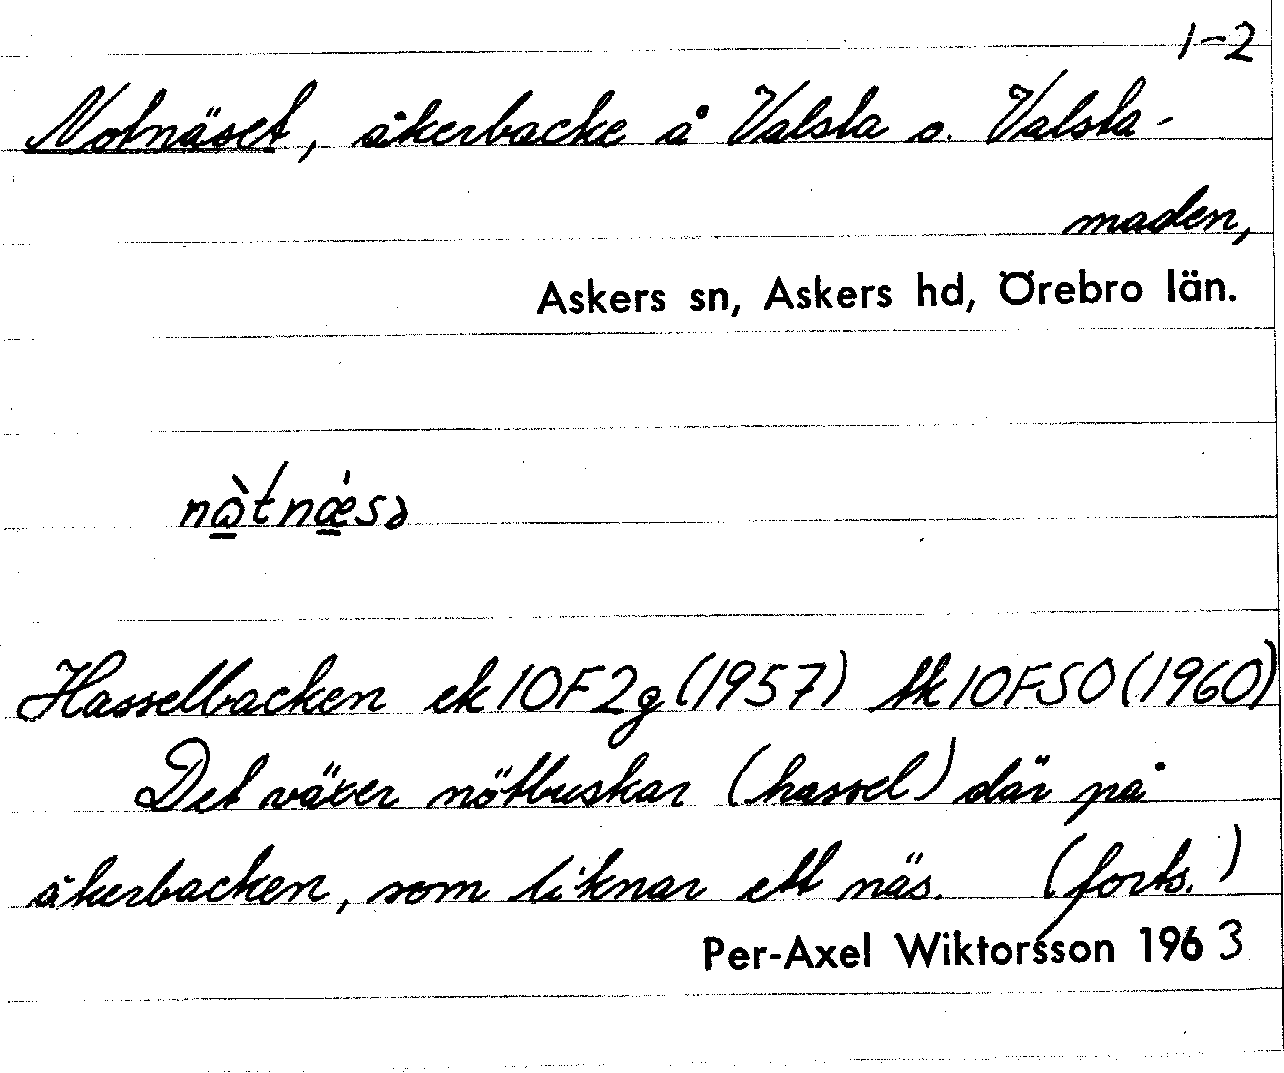 1-2
Notnäset, åkerbacke å Valsta o. Valsta-
maden,
Askers sn, Askers hd, Örebro län.
Hasselbacken ek 10F2g (1957) tk 10F50 (1960)
Det växer nötbuskar (hassel) där på
åkerbacken, som liknar ett näs. (forts.)
Per-Axel Wiktorsson 1963